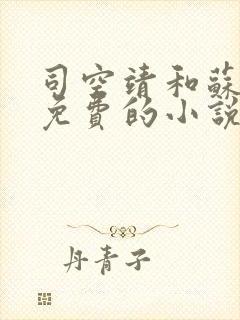 司空靖和蘇
免費的小說
丹青子